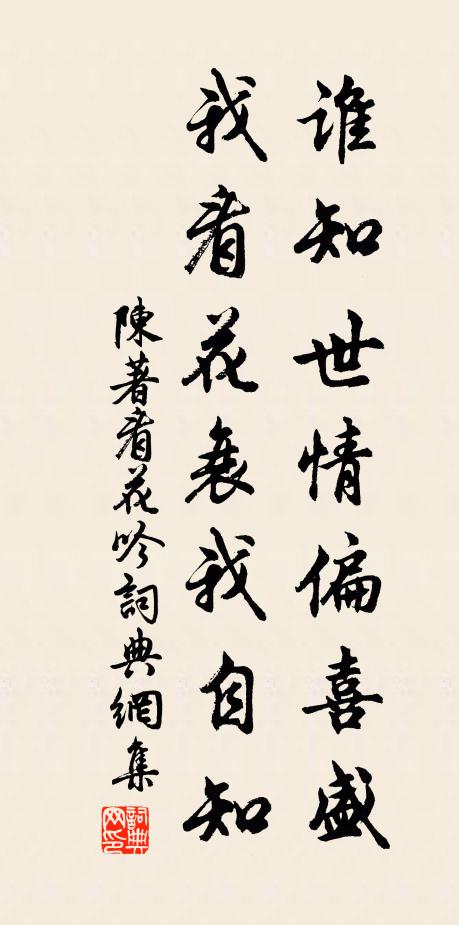 誰知世情偏喜盛
我看花衰我自知
陳著看花吟詞典網集
詞典網印